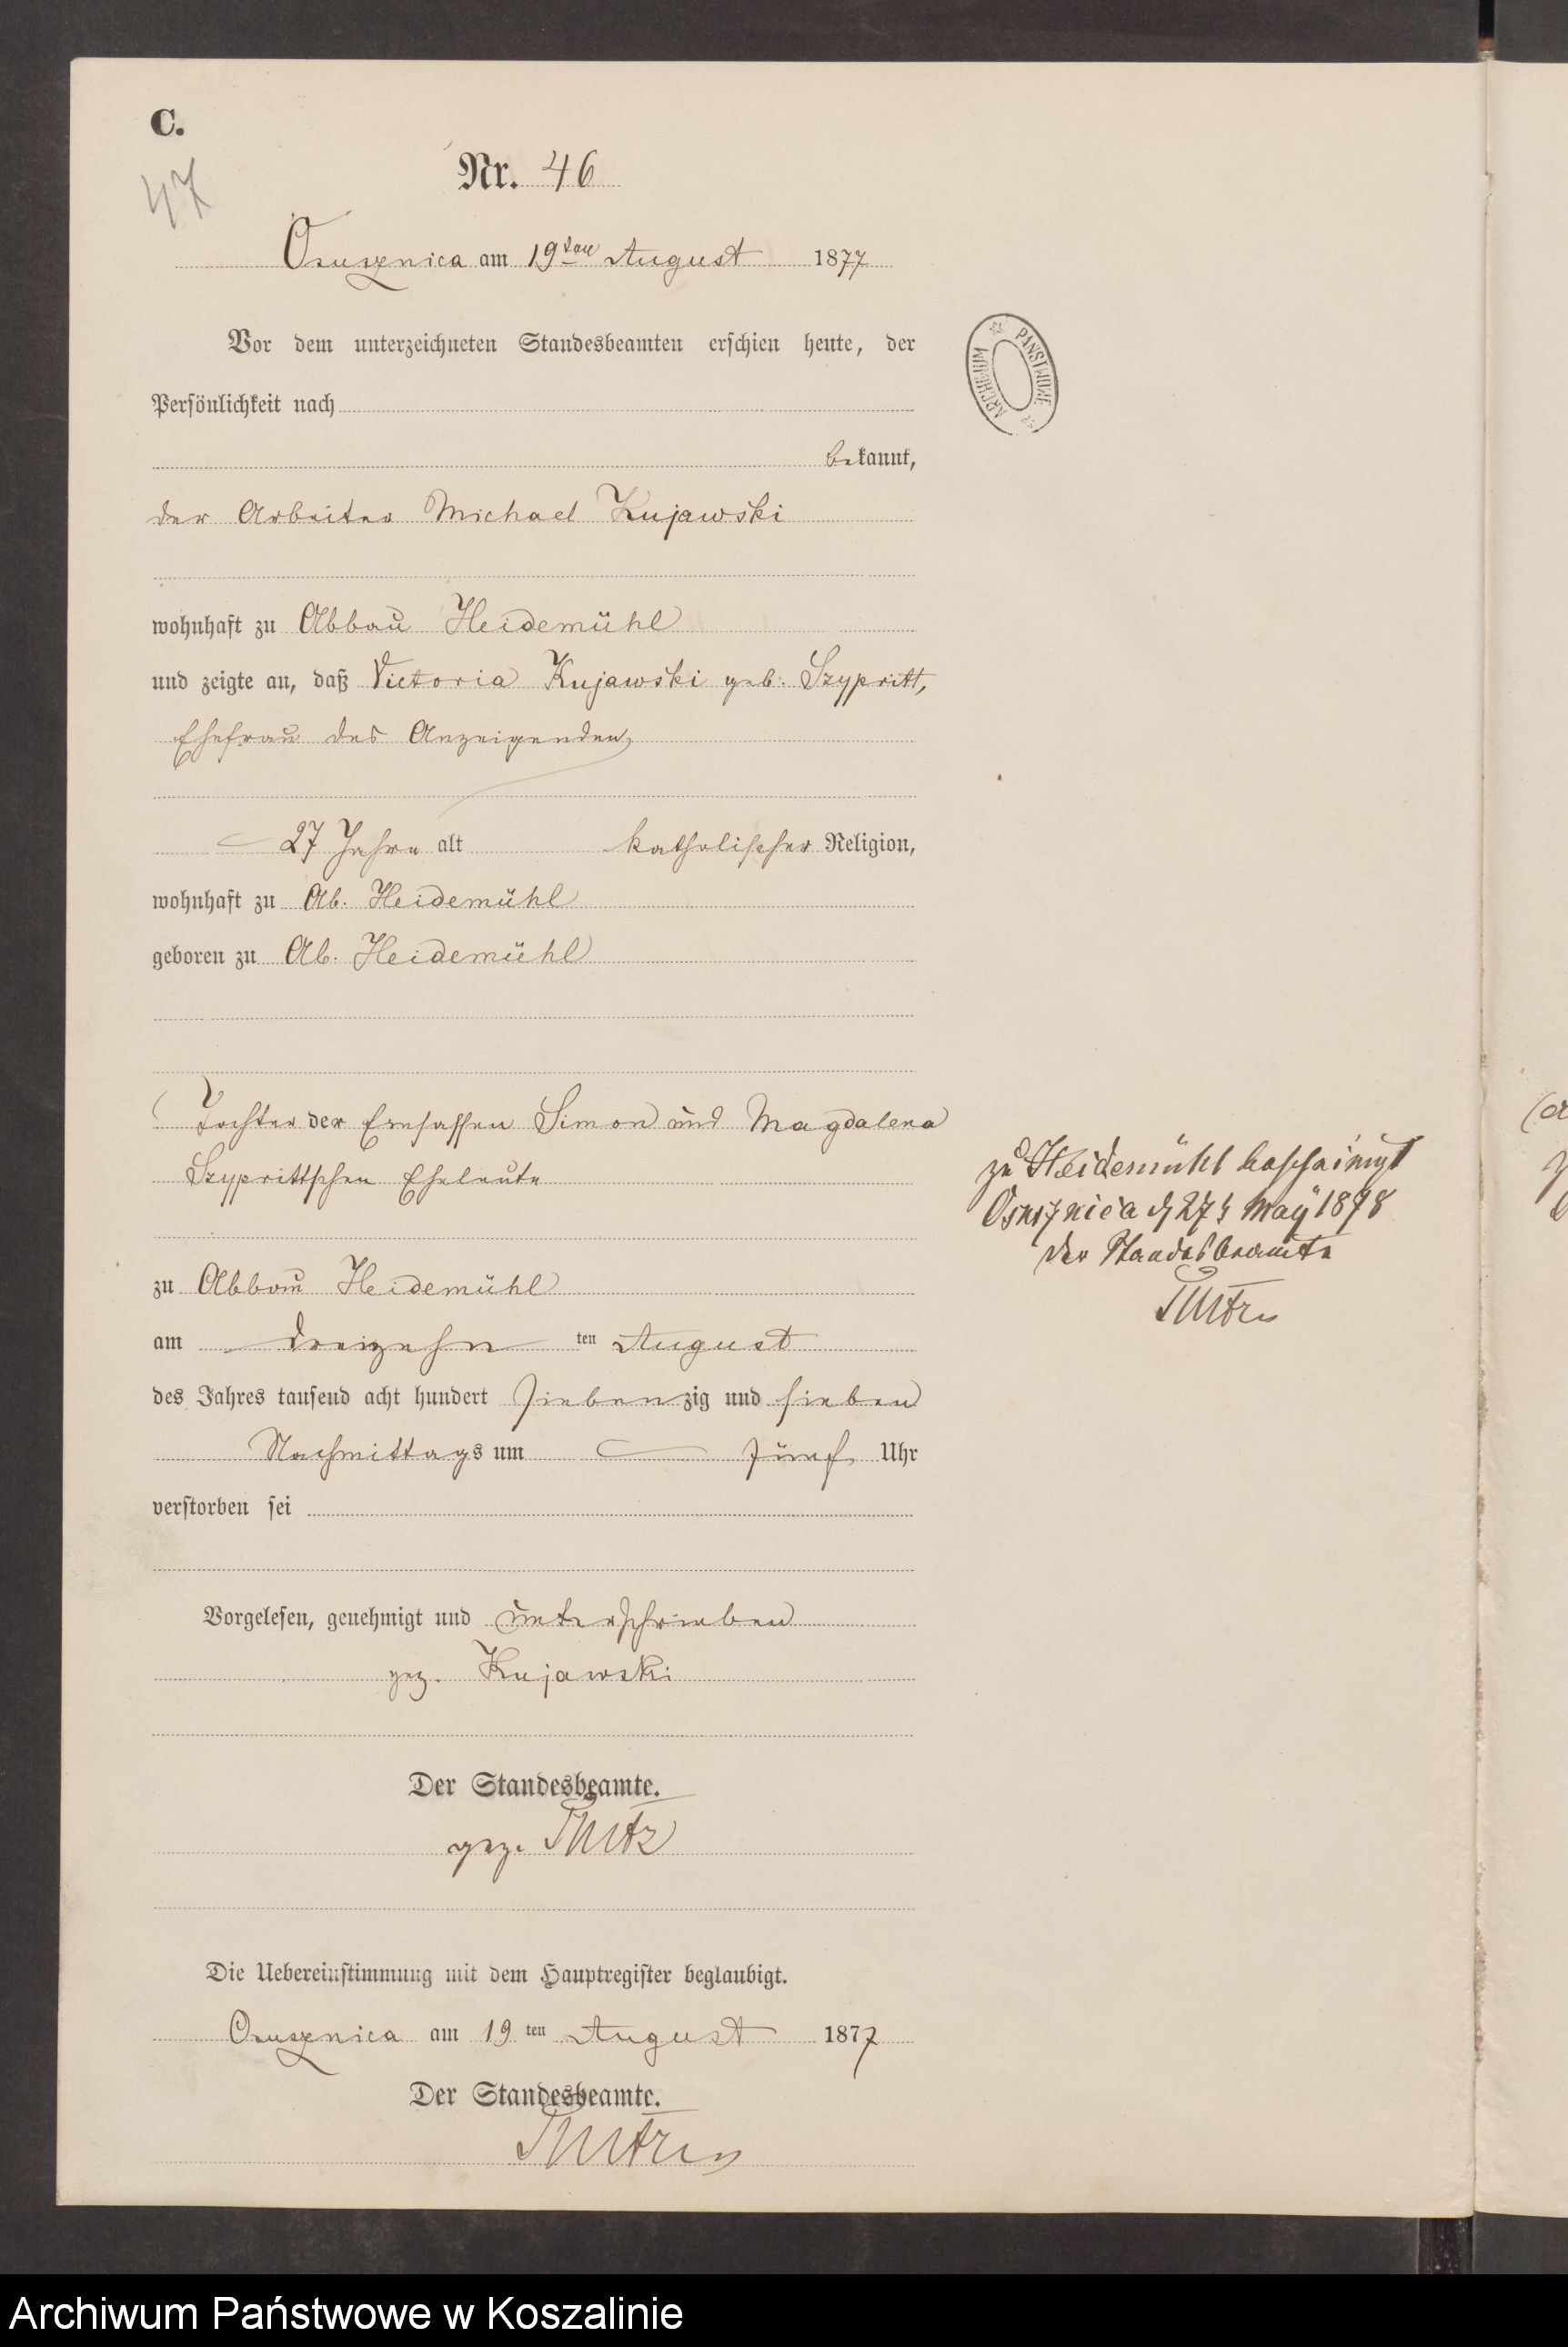 C.
47
Nr. 46
Osusznica am 19ten August 1877
Vor dem unterzeichneten Standesbeamten erschien heute, der
Persönlichkeit nach
bekannt,
der Arbeiter Michael Kujawski
wohnhaft zu Abbau Heidemühl
und zeigte an, daß Victoria Kujawski geb. Szypritt,
Ehefrau des Anzeigenden,
27 Jahre alt katholischer Religion,
wohnhaft zu Ab. Heidemühl
geboren zu Ab. Heidemühl
Tochter der Einsassen Simon und Magdalena
Szyprittschen Eheleute
zu Abbau Heidemühl
am dreizehn ten August
des Jahres tausend acht hundert siebenzig und sieben
Nachmittags um fünf Uhr
verstorben sei
Vorgelesen, genehmigt und unterschrieben
gez. Kujawski
Der Standesbeamte.
gez.
Die Uebereinstimmung mit dem Hauptregister beglaubigt.
Osusznica am 19 ten August 1877
Der Standesbeamte.
ARCHIWUM PAŃSTWOWE
zu Heidemühl bescheinigt
Osusznica d 27t May 1878
der Standesbeamte
Archiwum Państwowe w Koszalinie